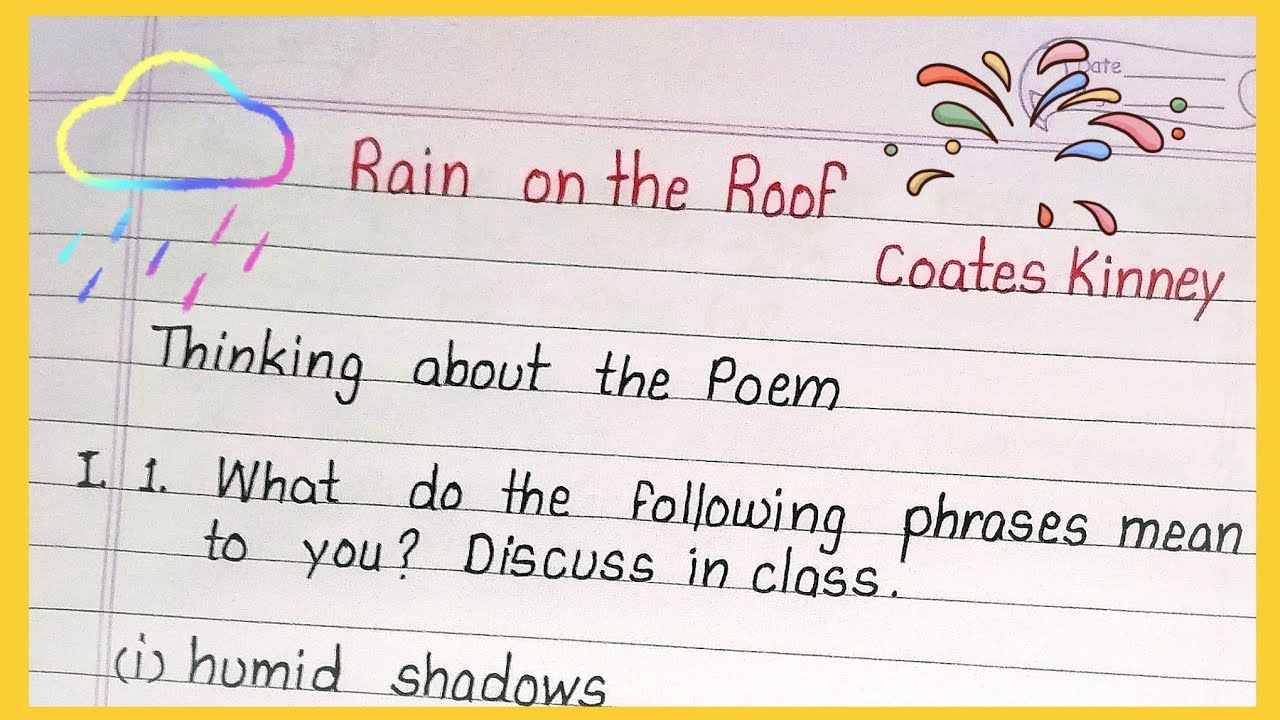 Date
Rain on the Roof
Coates Kinney
Thinking about the Poem
I. 1. What do the following phrases mean
to you? Discuss in class.
(i) humid shadows